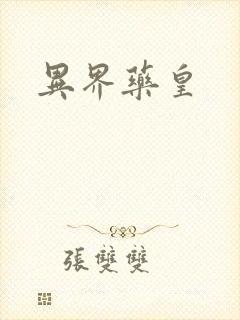 異界藥皇
張雙雙